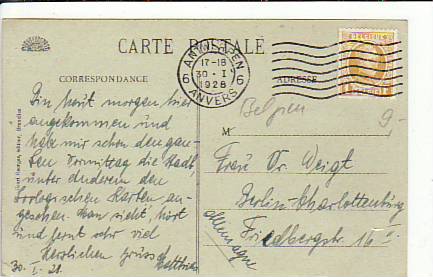 CARTE POSTALE
ANTWERPEN
6 6
17-18
30 - I
1928
ANVERS
BELGIQUE
CORRESPONDANCE
ADRESSE
Belgien
9-
Bin heut morgen hier
angekommen und
habe mir schon den gan-
zen Vormittag die Stadt,
unter anderem den
Zoologischen Garten an-
gesehen. Man sieht, hört
und lernt sehr viel
Herzlichen Gruss
30. I. 28.
M
Frau Dr. Weigt
Berlin-Charlottenburg
Friedbergstr. 16
Allemagne